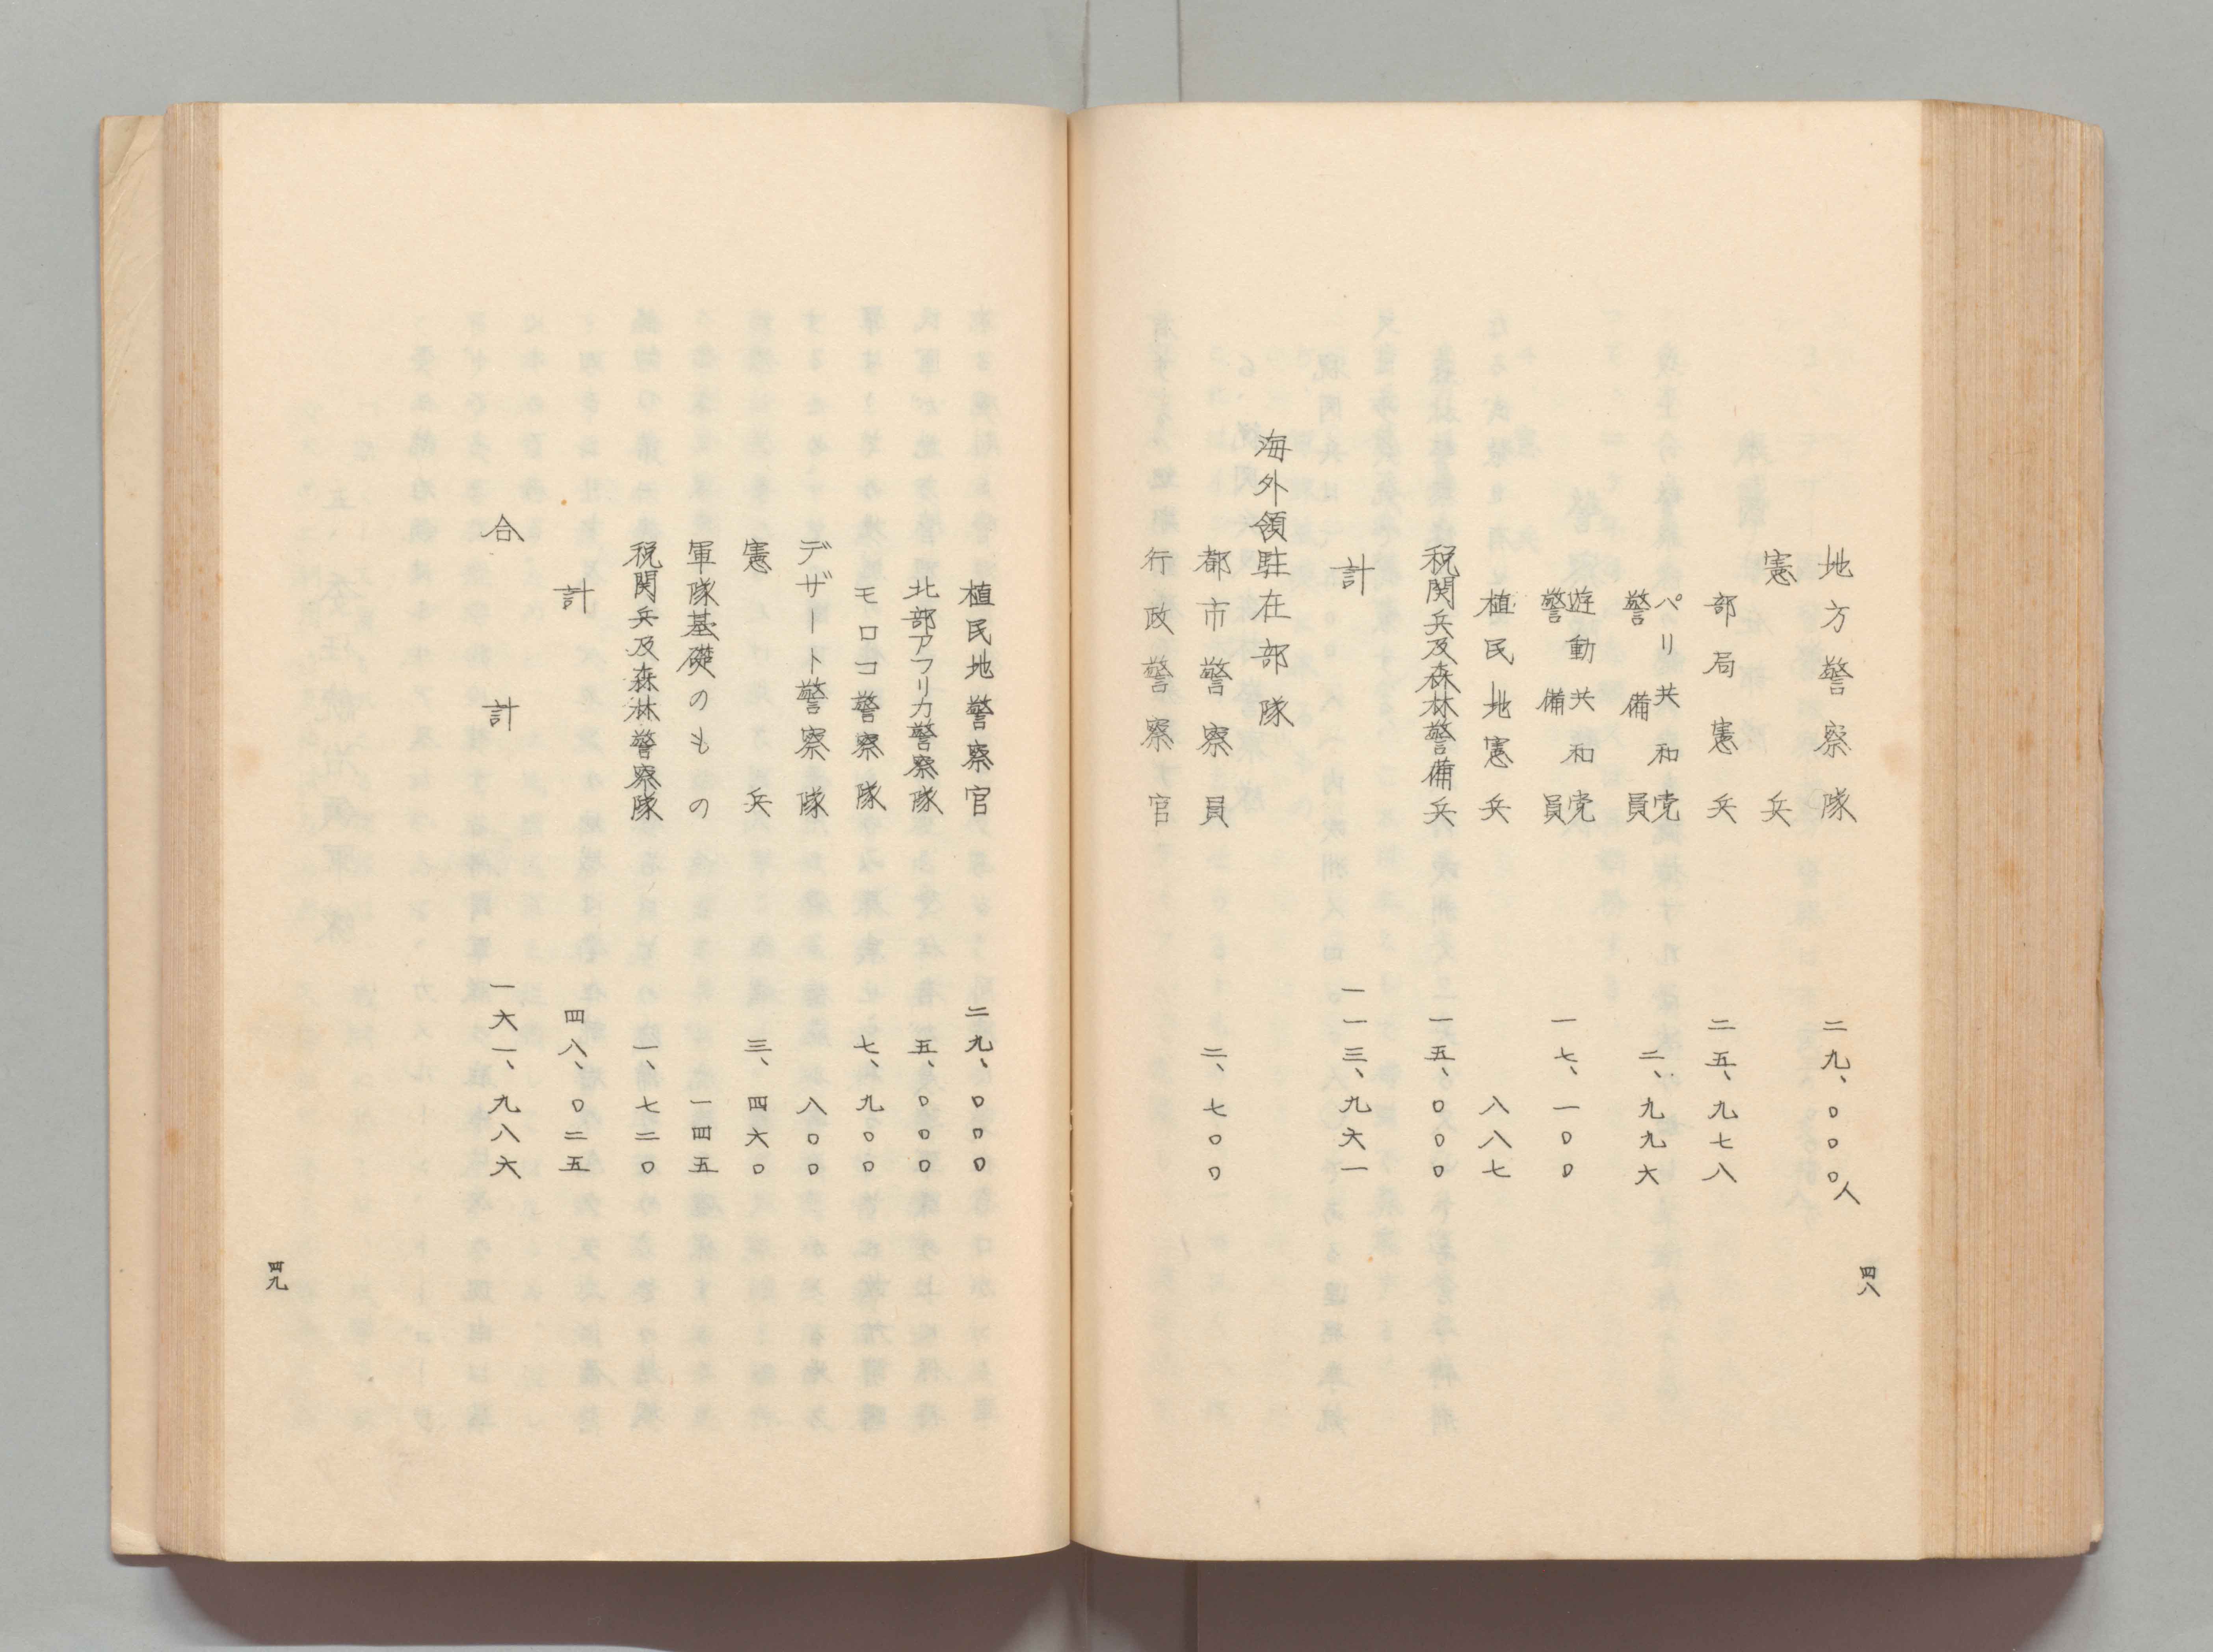 地方警察隊 二九、〇〇〇人
憲兵
部局憲兵 二五、九七八
パリ共和党
警備員 二、九九六
遊動共和党
警備員 一七、一〇〇
植民地憲兵 八八七
税関兵及森林警備兵 一五、〇〇〇
計 一一三、九六一
海外領駐在部隊
都市警察員 二、七〇〇
行政警察官
四八
植民地警察官 二九、〇〇〇
北部アフリカ警察隊 五、〇〇〇
モロコ警察隊 七、九〇〇
デザート警察隊 八〇〇
憲兵 三、四六〇
軍隊基礎のもの 一四五
税関兵及森林警察隊 一、七二〇
計 四八、〇二五
合計 一六一、九八六
四九